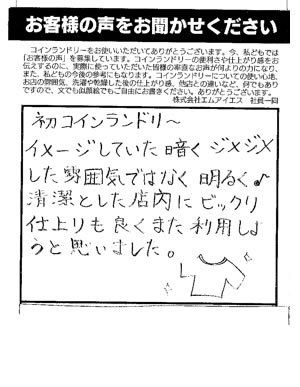 お客様の声をお聞かせください
コインランドリーをお使いいただいてありがとうございます。今、私どもでは
「お客様の声」を募集しています。コインランドリーの便利さや仕上がり感をお
伝えするのに、実際に使っていただいた皆様の率直なお声が何よりの力になり、
また、私どもの今後の参考にもなります。コインランドリーについての使い心地、
お店の雰囲気、洗濯や乾燥した後の仕上がり感、他店との違いなど、何でもあり
ですので、文でも似顔絵でもご自由にお書きください。ありがとうございます。
株式会社エムアイエス　社員一同
初コインランドリー〜
イメージしていた暗く ジメジメ
した雰囲気ではなく 明るく♪
清潔とした店内に ビックリ
仕上りも良くまた利用しよ
うと思いました。